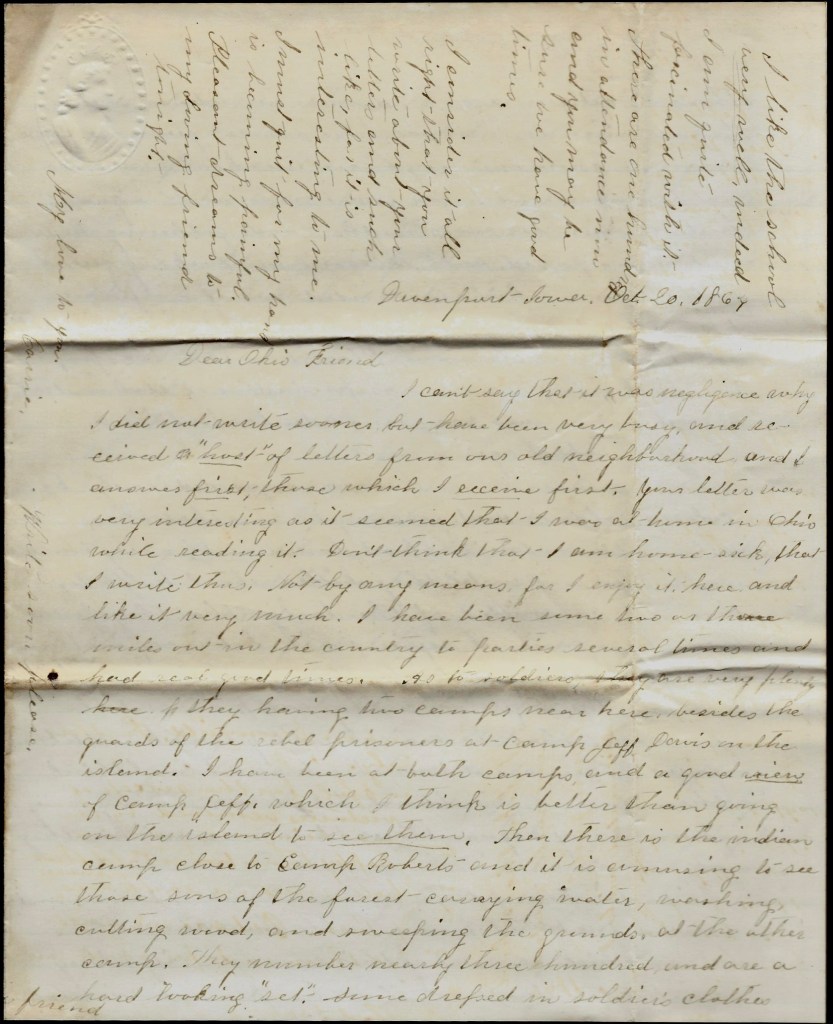 Davenport Iowa. Oct. 20, 1864
Dear Ohio Friend
I can't say that it was negligence why
I did not write sooner but have been very busy, and re-
ceived a "host" of letters from our old neighborhood and I
answer first, those which I receive first. Your letter was
very interesting as it seemed that I was at home in Ohio
while reading it. Don't think that I am home-sick, that
I write thus. Not by any means, for I enjoy it, here and
like it very much. I have been some two or three
miles out in the country to parties several times and
had real good times. As to soldiers, they are very plenty
here they having two camps near here, besides the
guards of the rebel prisoners at Camp Jeff Davis on the
island. I have been at both camps, and a good view
of Camp Jeff, which I think is better than going
on the island to see them. Then there is the indian
camp close to Camp Roberts and it is amusing to see
those sons of the forest carrying water, washing,
cutting wood, and sweeping the grounds, at the other
camp. They number nearly three hundred, and are a
hard "looking "set". some dressed in soldier's clothes
I like the school
very well, indeed
I am quite
facinated with it.
There are one hundred
in attendance now
and you may be
sure we have good
times.
I consider it all
right that you
write about your
letters and such
like, for it is
interesting to me.
I must quit for my hand
is becoming painful.
Pleasant dreams to
my loving friend
tonight.
My love to you.
Carrie.
Write soon please,
friend